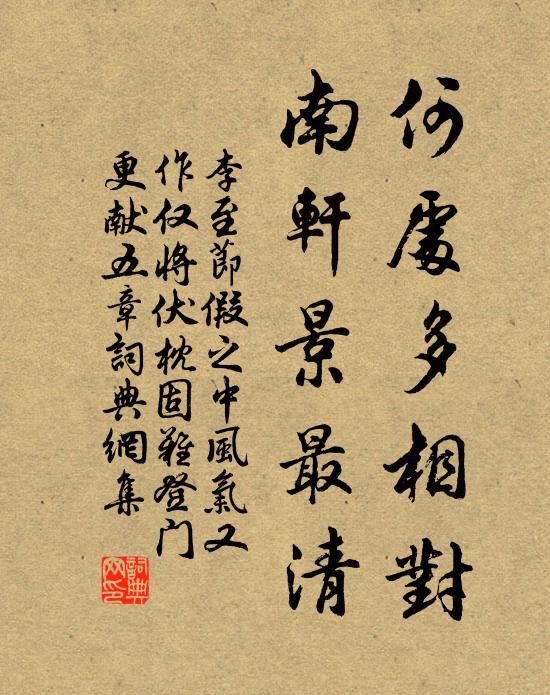 何處多相對
南軒景最清
李至節假之中風氣又
作仅將伏枕固難登门
更献五章詞典網集
詞典
网印